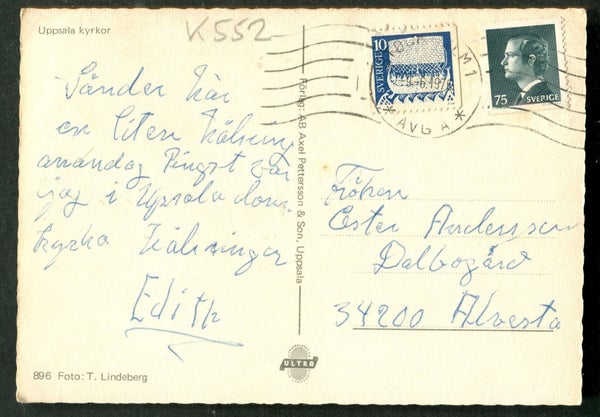 Uppsala kyrkor
K552
Sänder här
en liten hälsning
annandag Pingst var
jag i Uppsala dom-
kyrka hälsningar
Edith
896 Foto: T. Lindeberg
Förlag: AB Axel Pettersson & Son, Uppsala
ULTRA
10
SVERIGE
75
SVERIGE
AVGA
Fröken
Ester Andersson
Dalbogård
34200 Alvesta